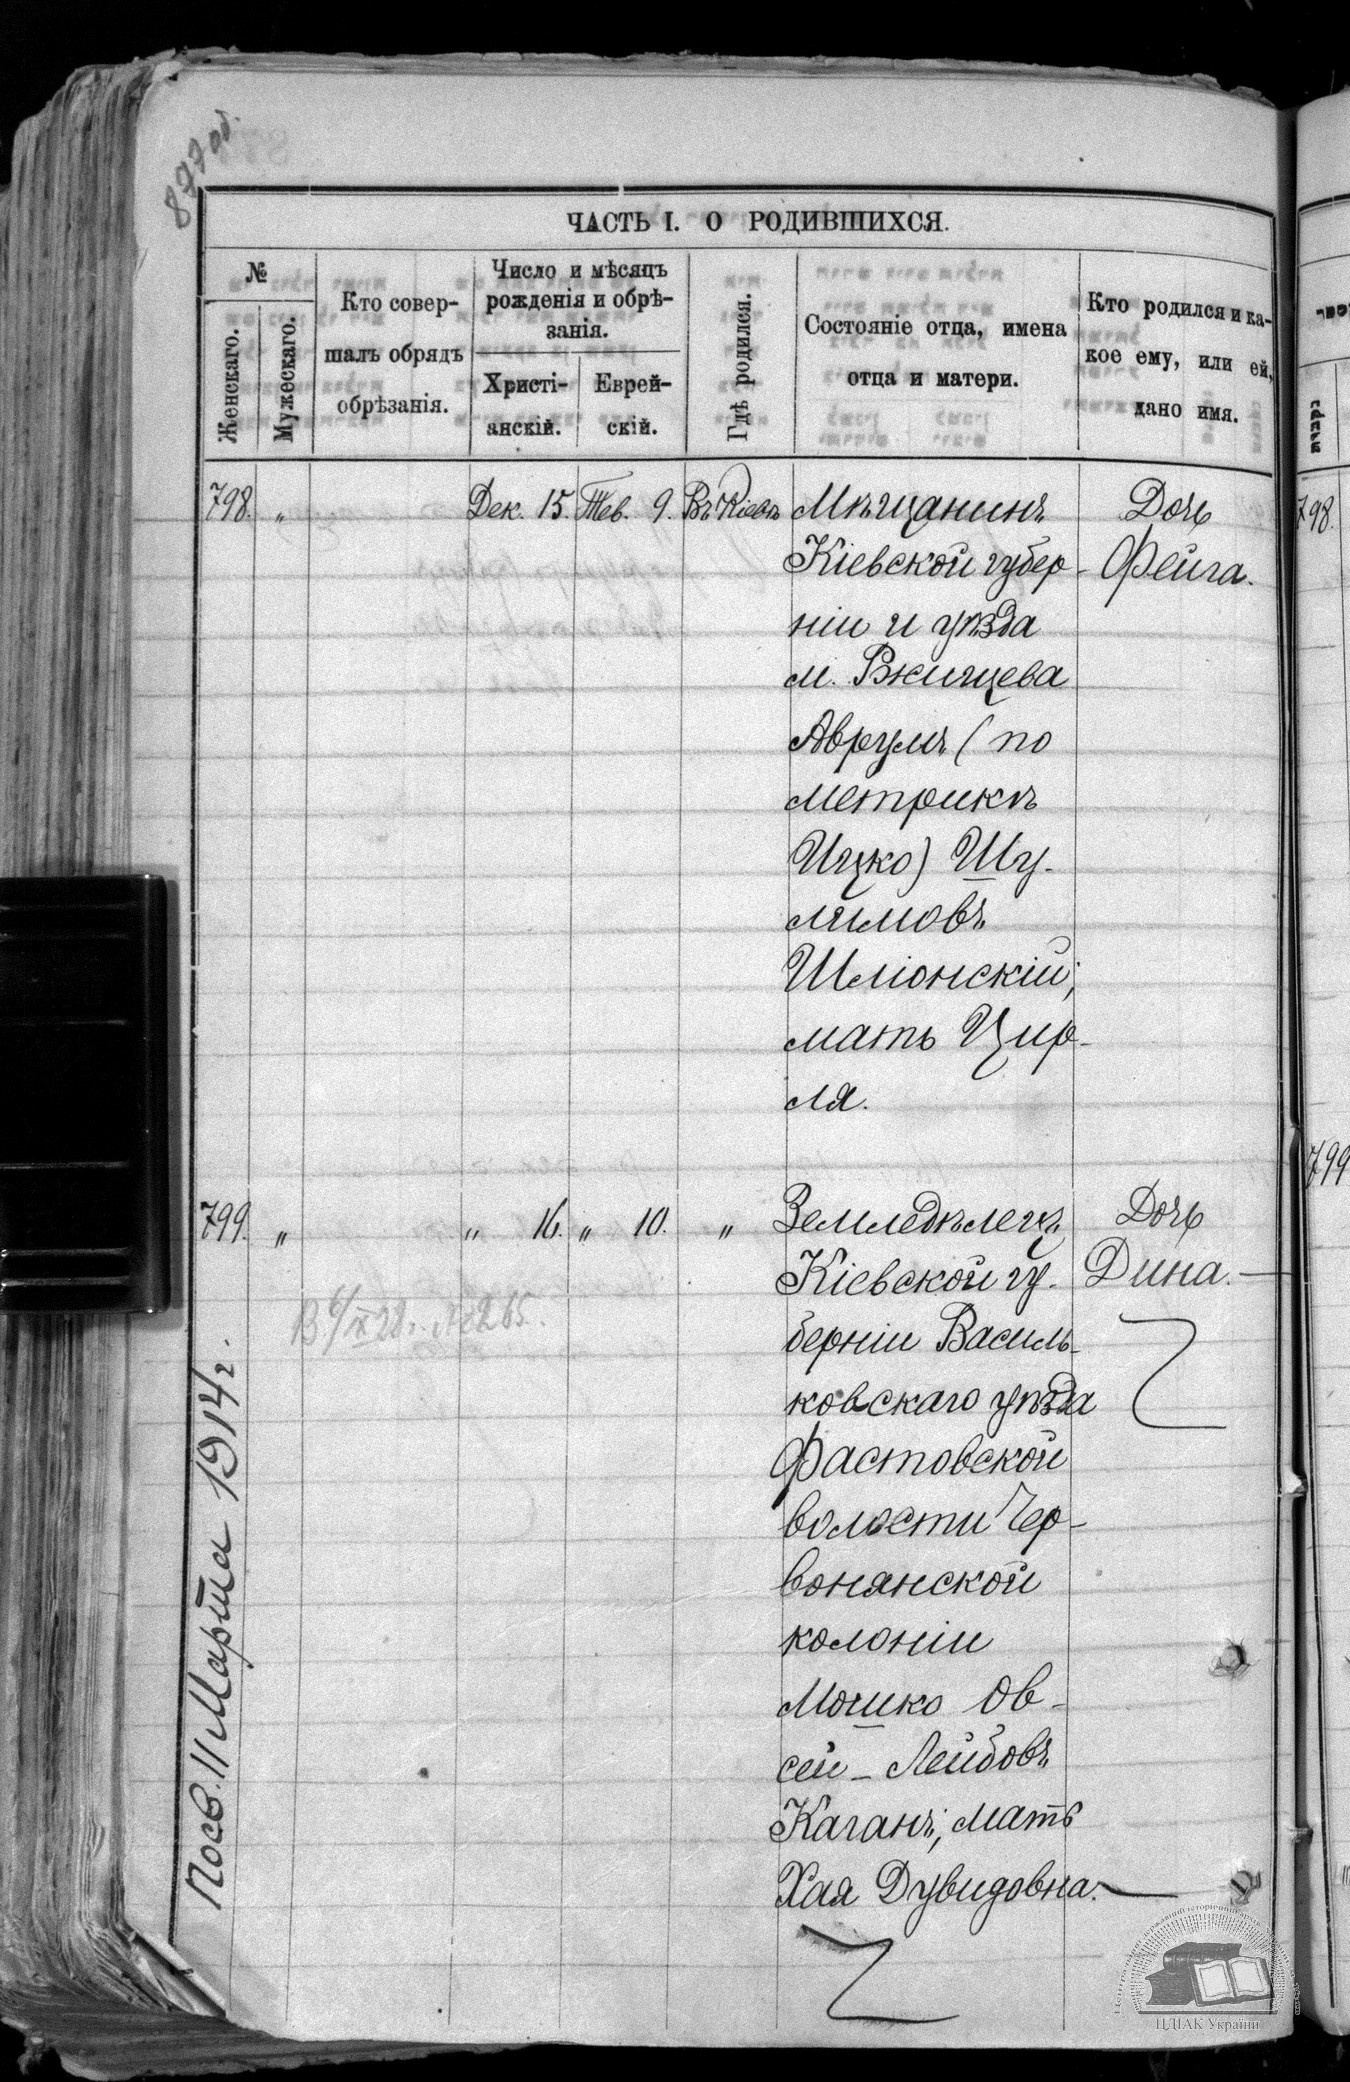 877 об.
ЧАСТЬ I. О РОДИВШИХСЯ.
№
Женскаго.
Мужескаго.
Кто совер-
шалъ обрядъ
обрѣзанія.
Число и мѣсяцъ
рожденія и обрѣ-
занія.
Христі-
анскій.
Еврей-
скій.
Гдѣ родился.
Состояніе отца, имена
отца и матери.
Кто родился и ка-
кое ему, или ей,
дано имя.
798. " Дек. 15. Тев. 9. Въ Кіевѣ
Мѣщанинъ
Кіевской губер-
ніи и уѣзда
м. Ржищева
Аврумъ (по
метрикѣ
Ицко) Шу-
лимовъ
Шліонскій;
мать Цир-
ля.
Дочь
Фейга.
799. " " 16. " 10. "
Земледѣлецъ
Кіевской гу-
берніи Василь-
ковскаго уѣзда
Фастовской
волости Чер-
вонянской
колоніи
Мошко Ов-
сей-Лейбовъ
Каганъ; мать
Хая Дувидовна.
Дочь
Дина.
№ 265.
Посв. 11 Марта 1914 г.
798.
799
ЦДІАК України